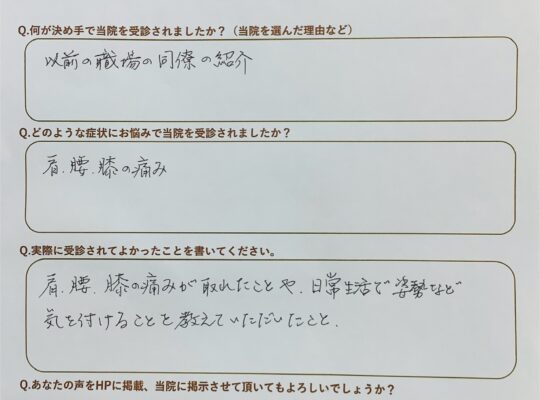 Q.何が決め手で当院を受診されましたか？（当院を選んだ理由など）
以前の職場の同僚の紹介
Q.どのような症状にお悩みで当院を受診されましたか？
肩.腰.膝の痛み
Q.実際に受診されてよかったことを書いてください。
肩.腰.膝の痛みが取れたことや.日常生活で姿勢など
気を付けることを教えていただいたこと.
Q.あなたの声をHPに掲載、当院に掲示させて頂いてもよろしいでしょうか？